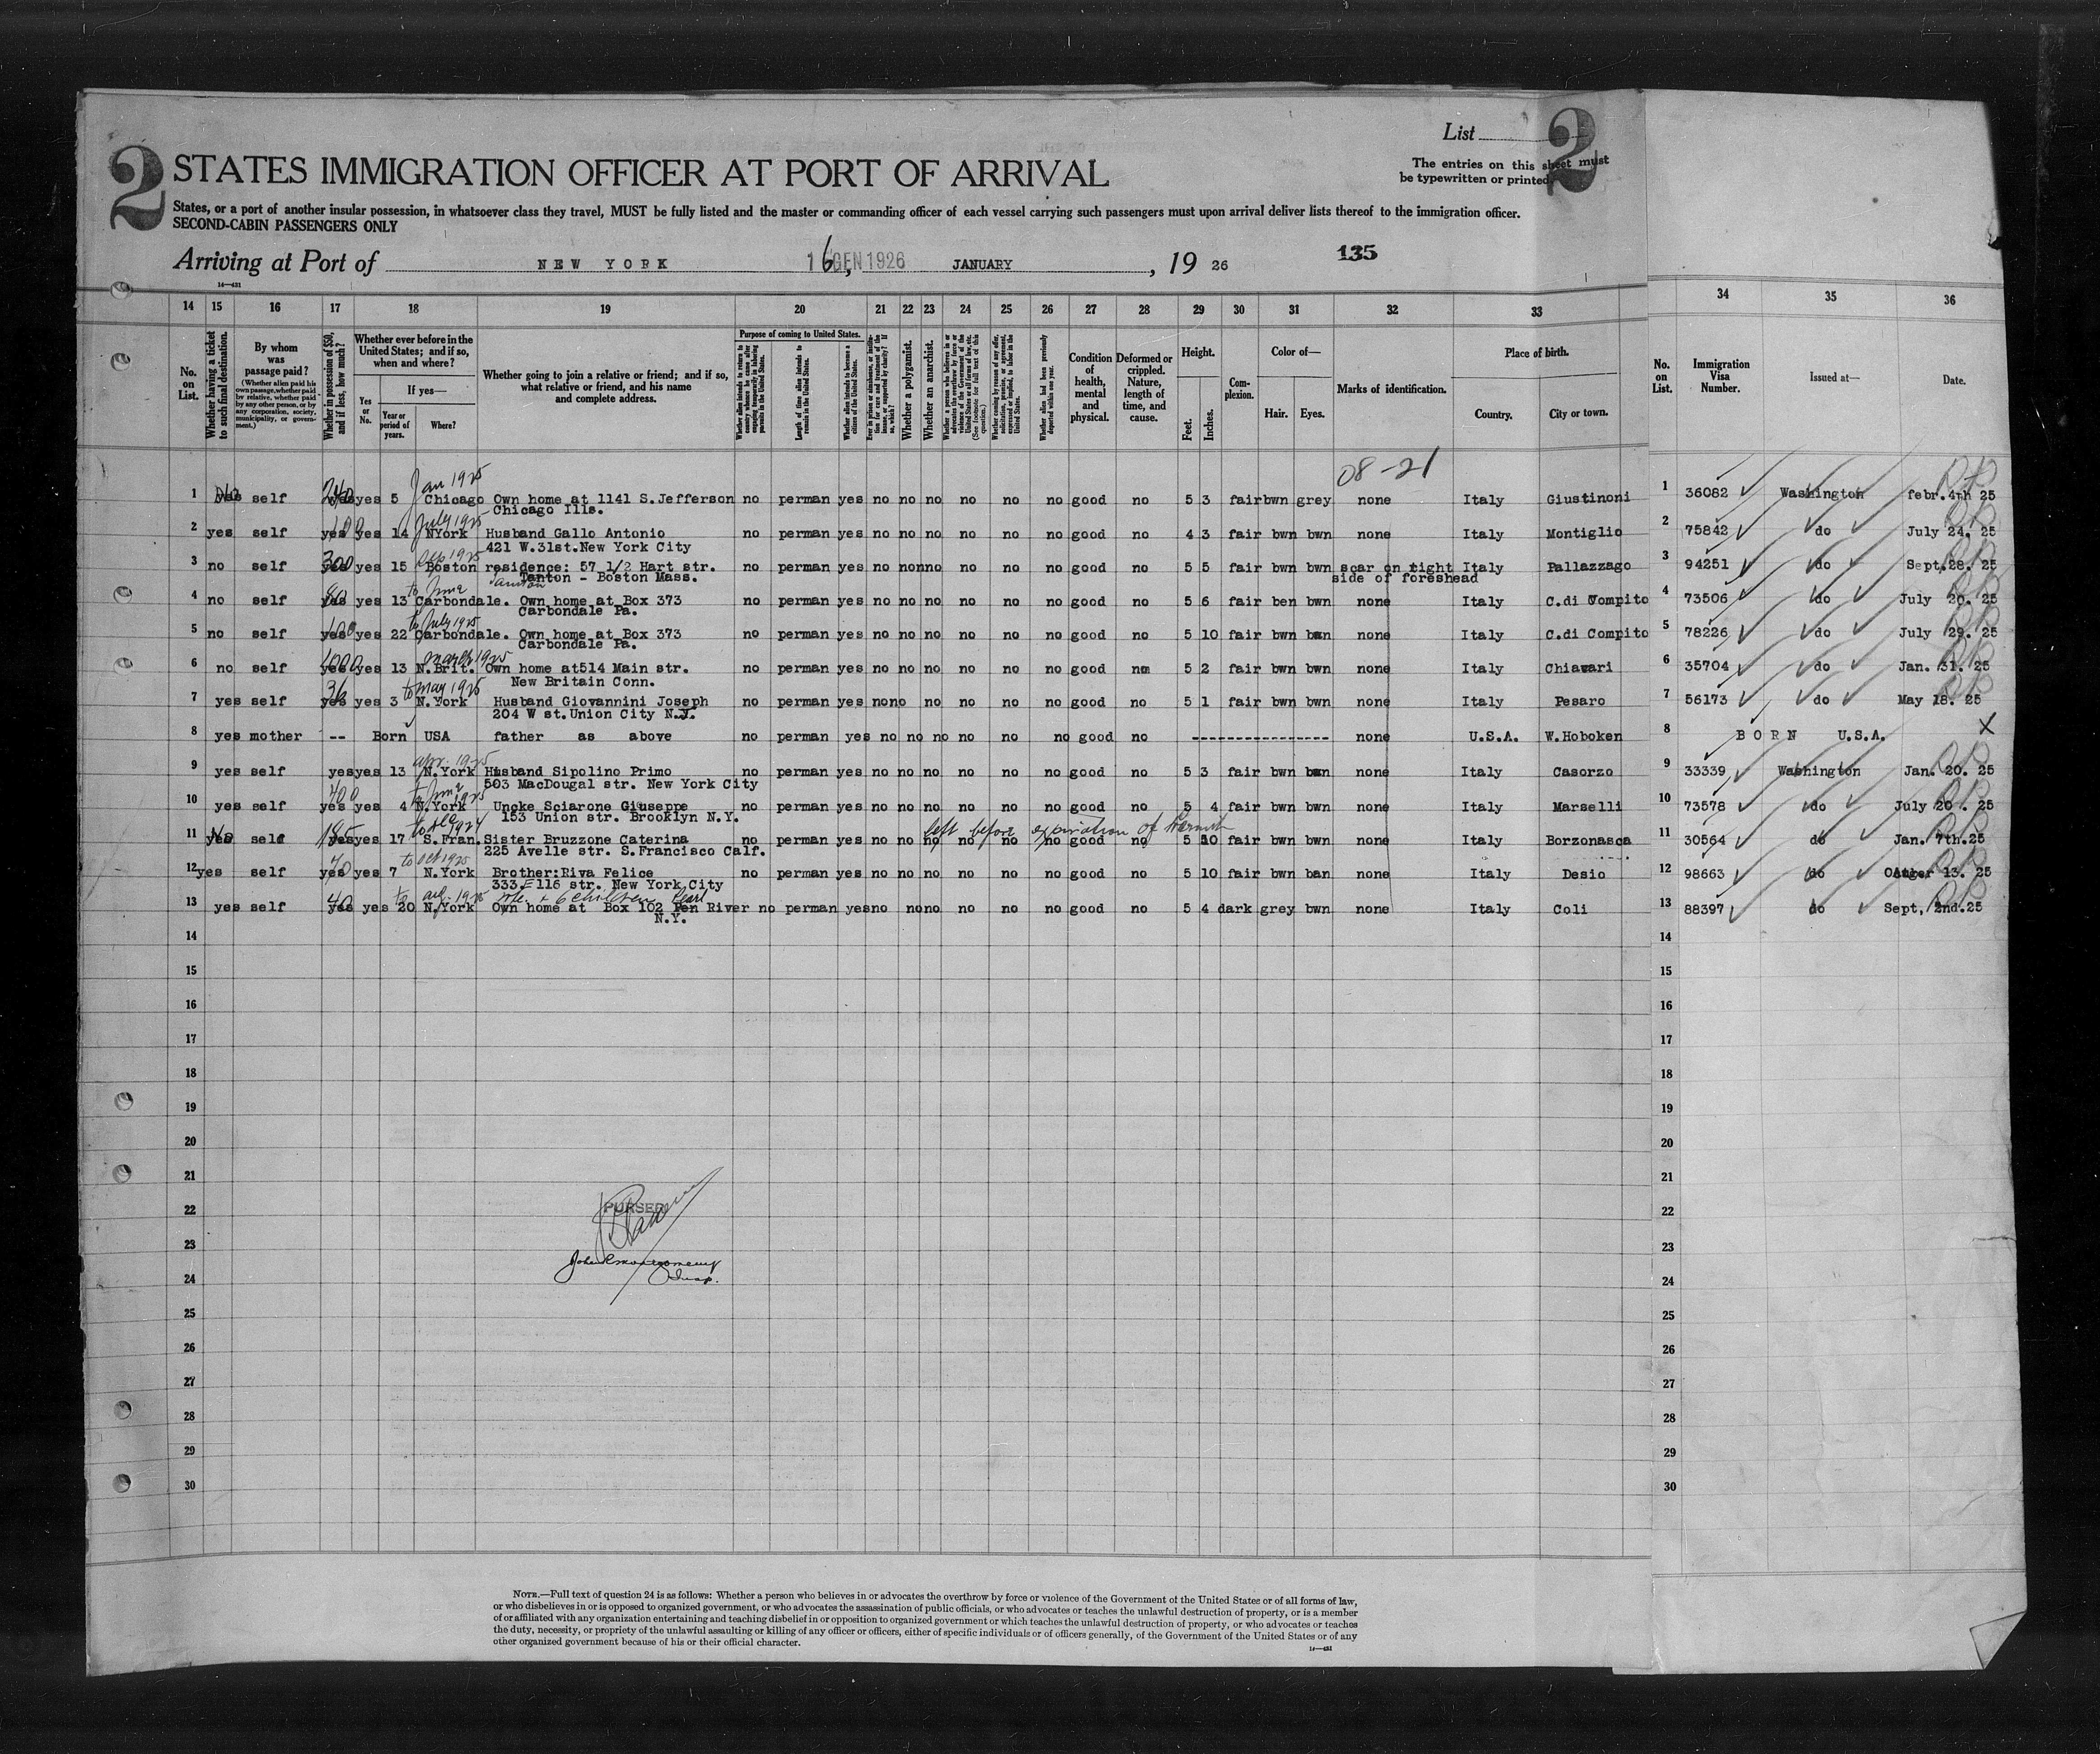 List 2
2 STATES IMMIGRATION OFFICER AT PORT OF ARRIVAL
The entries on this sheet must
be typewritten or printed.
States, or a port of another insular possession, in whatsoever class they travel, MUST be fully listed and the master or commanding officer of each vessel carrying such passengers must upon arrival deliver lists thereof to the immigration officer.
SECOND-CABIN PASSENGERS ONLY
Arriving at Port of NEW YORK 16 GEN 1926, JANUARY, 19 26 135
14—431
14 15 16 17 18 19 20 21 22 23 24 25 26 27 28 29 30 31 32 33 34 35 36
No. on List.
Whether having a ticket to such final destination.
By whom was passage paid?
(Whether alien paid his own passage, whether paid by relative, whether paid by any other person, or by any corporation, society, municipality, or government.)
Whether in possession of $50, and if less, how much?
Whether ever before in the United States; and if so, when and where?
Yes or No.
If yes—
Year or period of years.
Where?
Whether going to join a relative or friend; and if so, what relative or friend, and his name and complete address.
Purpose of coming to United States.
Whether alien intends to return to country whence he came after engaging temporarily in laboring pursuits in the United States.
Length of time alien intends to remain in the United States.
Whether alien intends to become a citizen of the United States.
Whether a polygamist.
Whether an anarchist.
Whether alien had been previously deported within one year.
Condition of health, mental and physical.
Deformed or crippled. Nature, length of time, and cause.
Height.
Feet.
Inches.
Complexion.
Color of—
Hair.
Eyes.
Marks of identification.
Place of birth.
Country.
City or town.
No. on List.
Immigration Visa Number.
Issued at—
Date.
08-21
Jan 1925
1 self 240 yes 5 Chicago Own home at 1141 S.Jefferson no perman yes no no no no no no good no 5 3 fair bwn grey none Italy Giustinoni 1 36082 Washington febr.4th 25
Chicago Ills.
July 1925
2 yes self yes yes 14 NYork Husband Gallo Antonio no perman yes no no no no no no good no 4 3 fair bwn bwn none Italy Montiglio 2 75842 do July 24. 25
421 W.31st.New York City
Sep 1925
3 no self 300 yes 15 Boston residence: 57 1/2 Hart str. no perman yes no no no no no no good no 5 5 fair bwn bwn scar on right Italy Pallazzago 3 94251 do Sept.28. 25
Tanton - Boston Mass. side of foreshead
Taunton
to June
4 no self yes yes 13 Carbondale. Own home at Box 373 no perman yes no no no no no no good no 5 6 fair ben bwn none Italy C.di Compito 4 73506 do July 20. 25
Carbondale Pa.
to July 1925
5 no self yes yes 22 Carbondale. Own home at Box 373 no perman yes no no no no no no good no 5 10 fair bwn bwn none Italy C.di Compito 5 78226 do July 29. 25
Carbondale Pa.
March 1925
6 no self 1000 yes 13 N.Brit. Own home at514 Main str. no perman yes no no no no no no good no 5 2 fair bwn bwn none Italy Chiavari 6 35704 do Jan. 31. 25
New Britain Conn.
to May 1925
7 yes self yes yes 3 N.York Husband Giovannini Joseph no perman yes no no no no no good no 5 1 fair bwn bwn none Italy Pesaro 7 56173 do May 18. 25
204 W st.Union City N.J.
8 yes mother -- Born USA father as above no perman yes no no no no no no good no ---------------- none U.S.A. W.Hoboken 8 BORN U.S.A. X
apr. 1925
9 yes self yes yes 13 N.York Husband Sipolino Primo no perman yes no no no no no no good no 5 3 fair bwn bwn none Italy Casorzo 9 33339 Washington Jan. 20. 25
503 MacDougal str. New York City
to June 1925
10 yes self yes yes 4 N.York Uncke Sciarone Giuseppe no perman yes no no no no no no good no 5 4 fair bwn bwn none Italy Marselli 10 73578 do July 20. 25
153 Union str. Brooklyn N.Y.
left before expiration of Permit
11 No self 185 yes 17 S.Fran. Sister Bruzzone Caterina no perman yes no no no no no no good no 5 10 fair bwn bwn none Italy Borzonasca 11 30564 do Jan. 7th.25
225 Avelle str. S.Francisco Calf.
to Oct 1925
12 yes self yes yes 7 N.York Brother:Riva Felice no perman yes no no no no no no good no 5 10 fair bwn ban none Italy Desio 12 98663 do 13. 25
333 E 116 str. New York City
+ 6 children Pearl
13 yes self 40 yes 20 N.York Own home at Box 102 Pen River no perman yes no no no no no no good no 5 4 dark grey bwn none Italy Coli 13 88397 do Sept, 2nd.25
N.Y.
14 14
15 15
16 16
17 17
18 18
19 19
20 20
21 21
22 PURSER 22
23 23
24 Insp. 24
25 25
26 26
27 27
28 28
29 29
30 30
NOTE.—Full text of question 24 is as follows: Whether a person who believes in or advocates the overthrow by force or violence of the Government of the United States or of all forms of law,
or who disbelieves in or is opposed to organized government, or who advocates the assassination of public officials, or who advocates or teaches the unlawful destruction of property, or is a member
of or affiliated with any organization entertaining and teaching disbelief in or opposition to organized government or which teaches the unlawful destruction of property, or who advocates or teaches
the duty, necessity, or propriety of the unlawful assaulting or killing of any officer or officers, either of specific individuals or of officers generally, of the Government of the United States or of any
other organized government because of his or their official character.
14—431